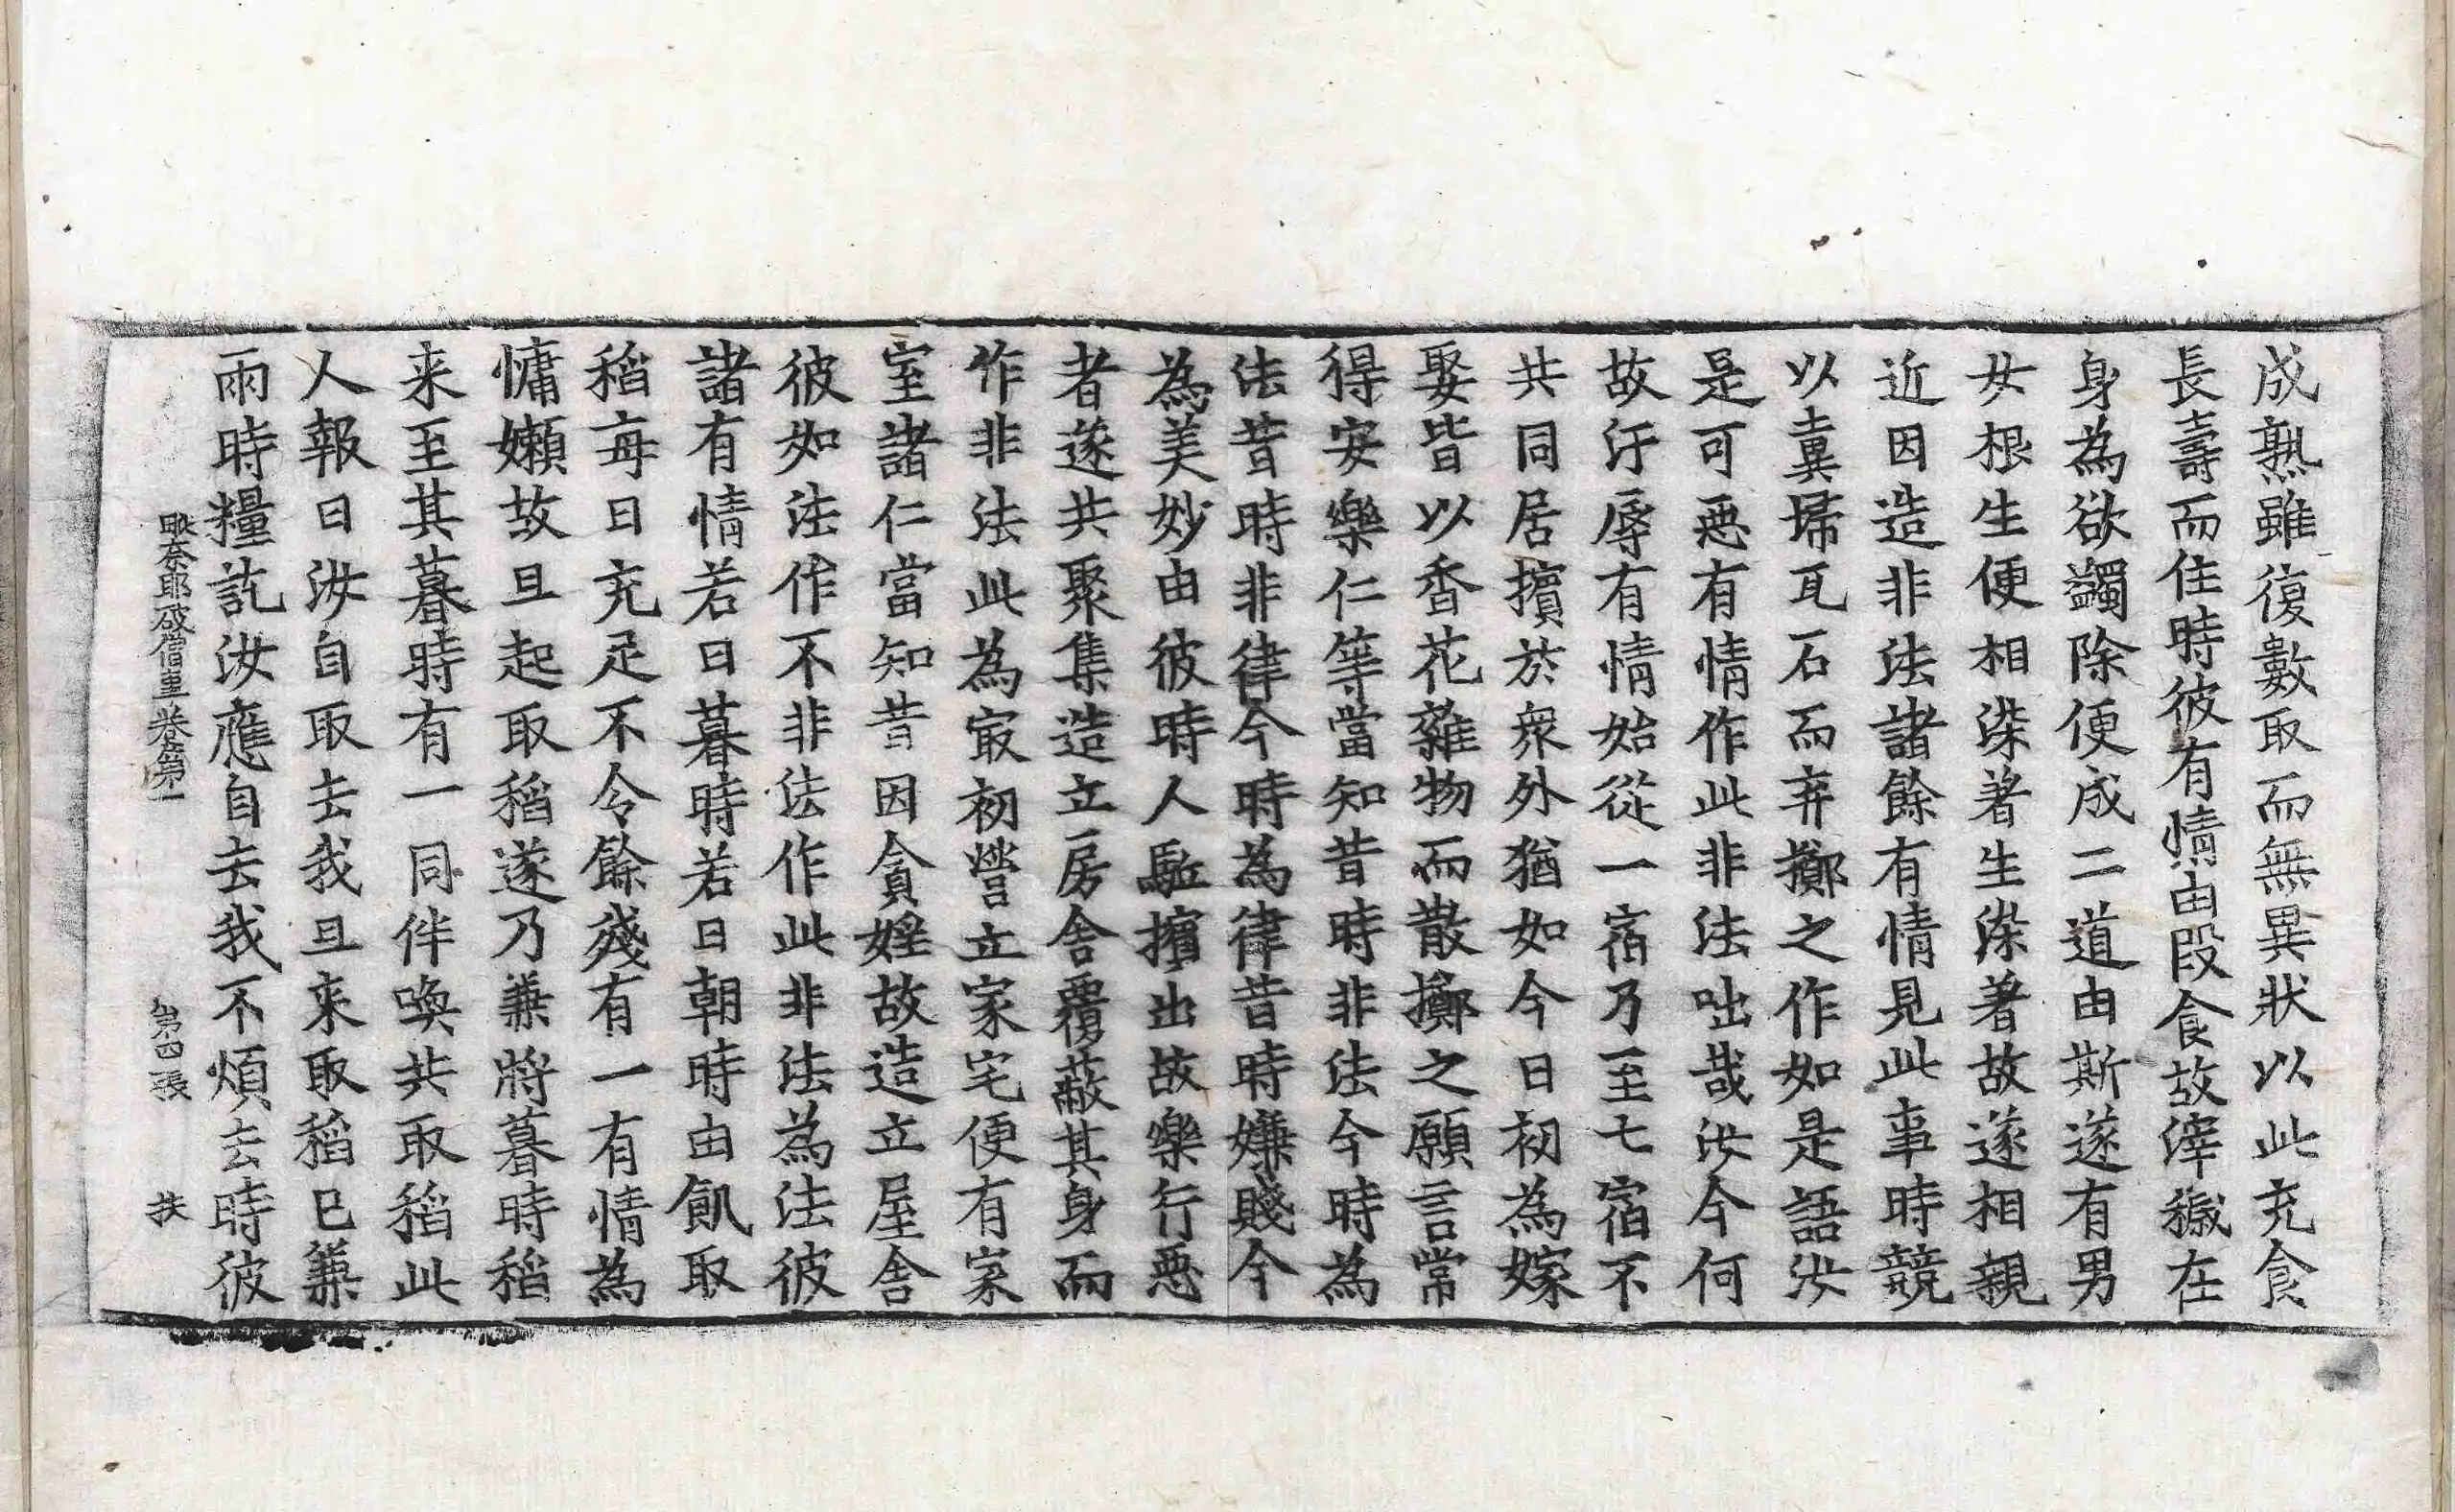 成熟雖復數取而無異狀以此充食
長壽而住時彼有情由段食故滓穢在
身為欲蠲除便成二道由斯遂有男
女根生便相染著生染著故遂相親
近因造非法諸餘有情見此事時競
以糞掃瓦石而弃擲之作如是語汝
是可惡有情作此非法咄哉汝今何
故汙辱有情始從一宿乃至七宿不
共同居擯於衆外猶如今日初為嫁
娶皆以香花雜物而散擲之願言常
得安樂仁等當知昔時非法今時為
法昔時非律今時為律昔時嫌賤今
為美妙由彼時人駈擯出故樂行惡
者遂共聚集造立房舍覆蔽其身而
作非法此為㝡初營立家宅便有家
室諸仁當知昔因貪婬故造立屋舍
彼如法作不非法作此非法為法彼
諸有情若日暮時若日朝時由飢取
稻每日充足不令餘殘有一有情為
慵嬾故旦起取稻遂乃兼將暮時稻
来至其暮時有一同伴喚共取稻此
人報曰汝自取去我旦來取稻已兼
兩時糧訖汝應自去我不煩去時彼
毗奈耶破僧事 卷第一 第四張 扶